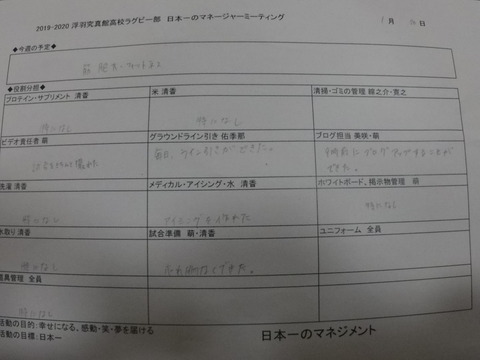 2019-2020 浮羽究真館高校ラグビー部 日本一のマネージャーミーティング
月 日
◆今週の予定◆
◆役割分担◆
プロテイン・サプリメント 清香
米 清香
清掃・ゴミの管理 綾之介・寛之
特になし
特になし
ビデオ責任者 萌
グラウンドライン引き 佑季那
ブログ担当 美咲・萌
毎日、ライン引きができた。
できた。
洗濯 清香
メディカル・アイシング・水 清香
ホワイトボード、掲示物管理 萌
特になし
アイシングを作れた
特になし
水取り 清香
試合準備 萌・清香
ユニフォーム 全員
特になし
忘れ物なくできた。
道具管理 全員
特になし
活動の目的：幸せになる、感動・笑・夢を届ける
活動の目標：日本一
日本一のマネジメント